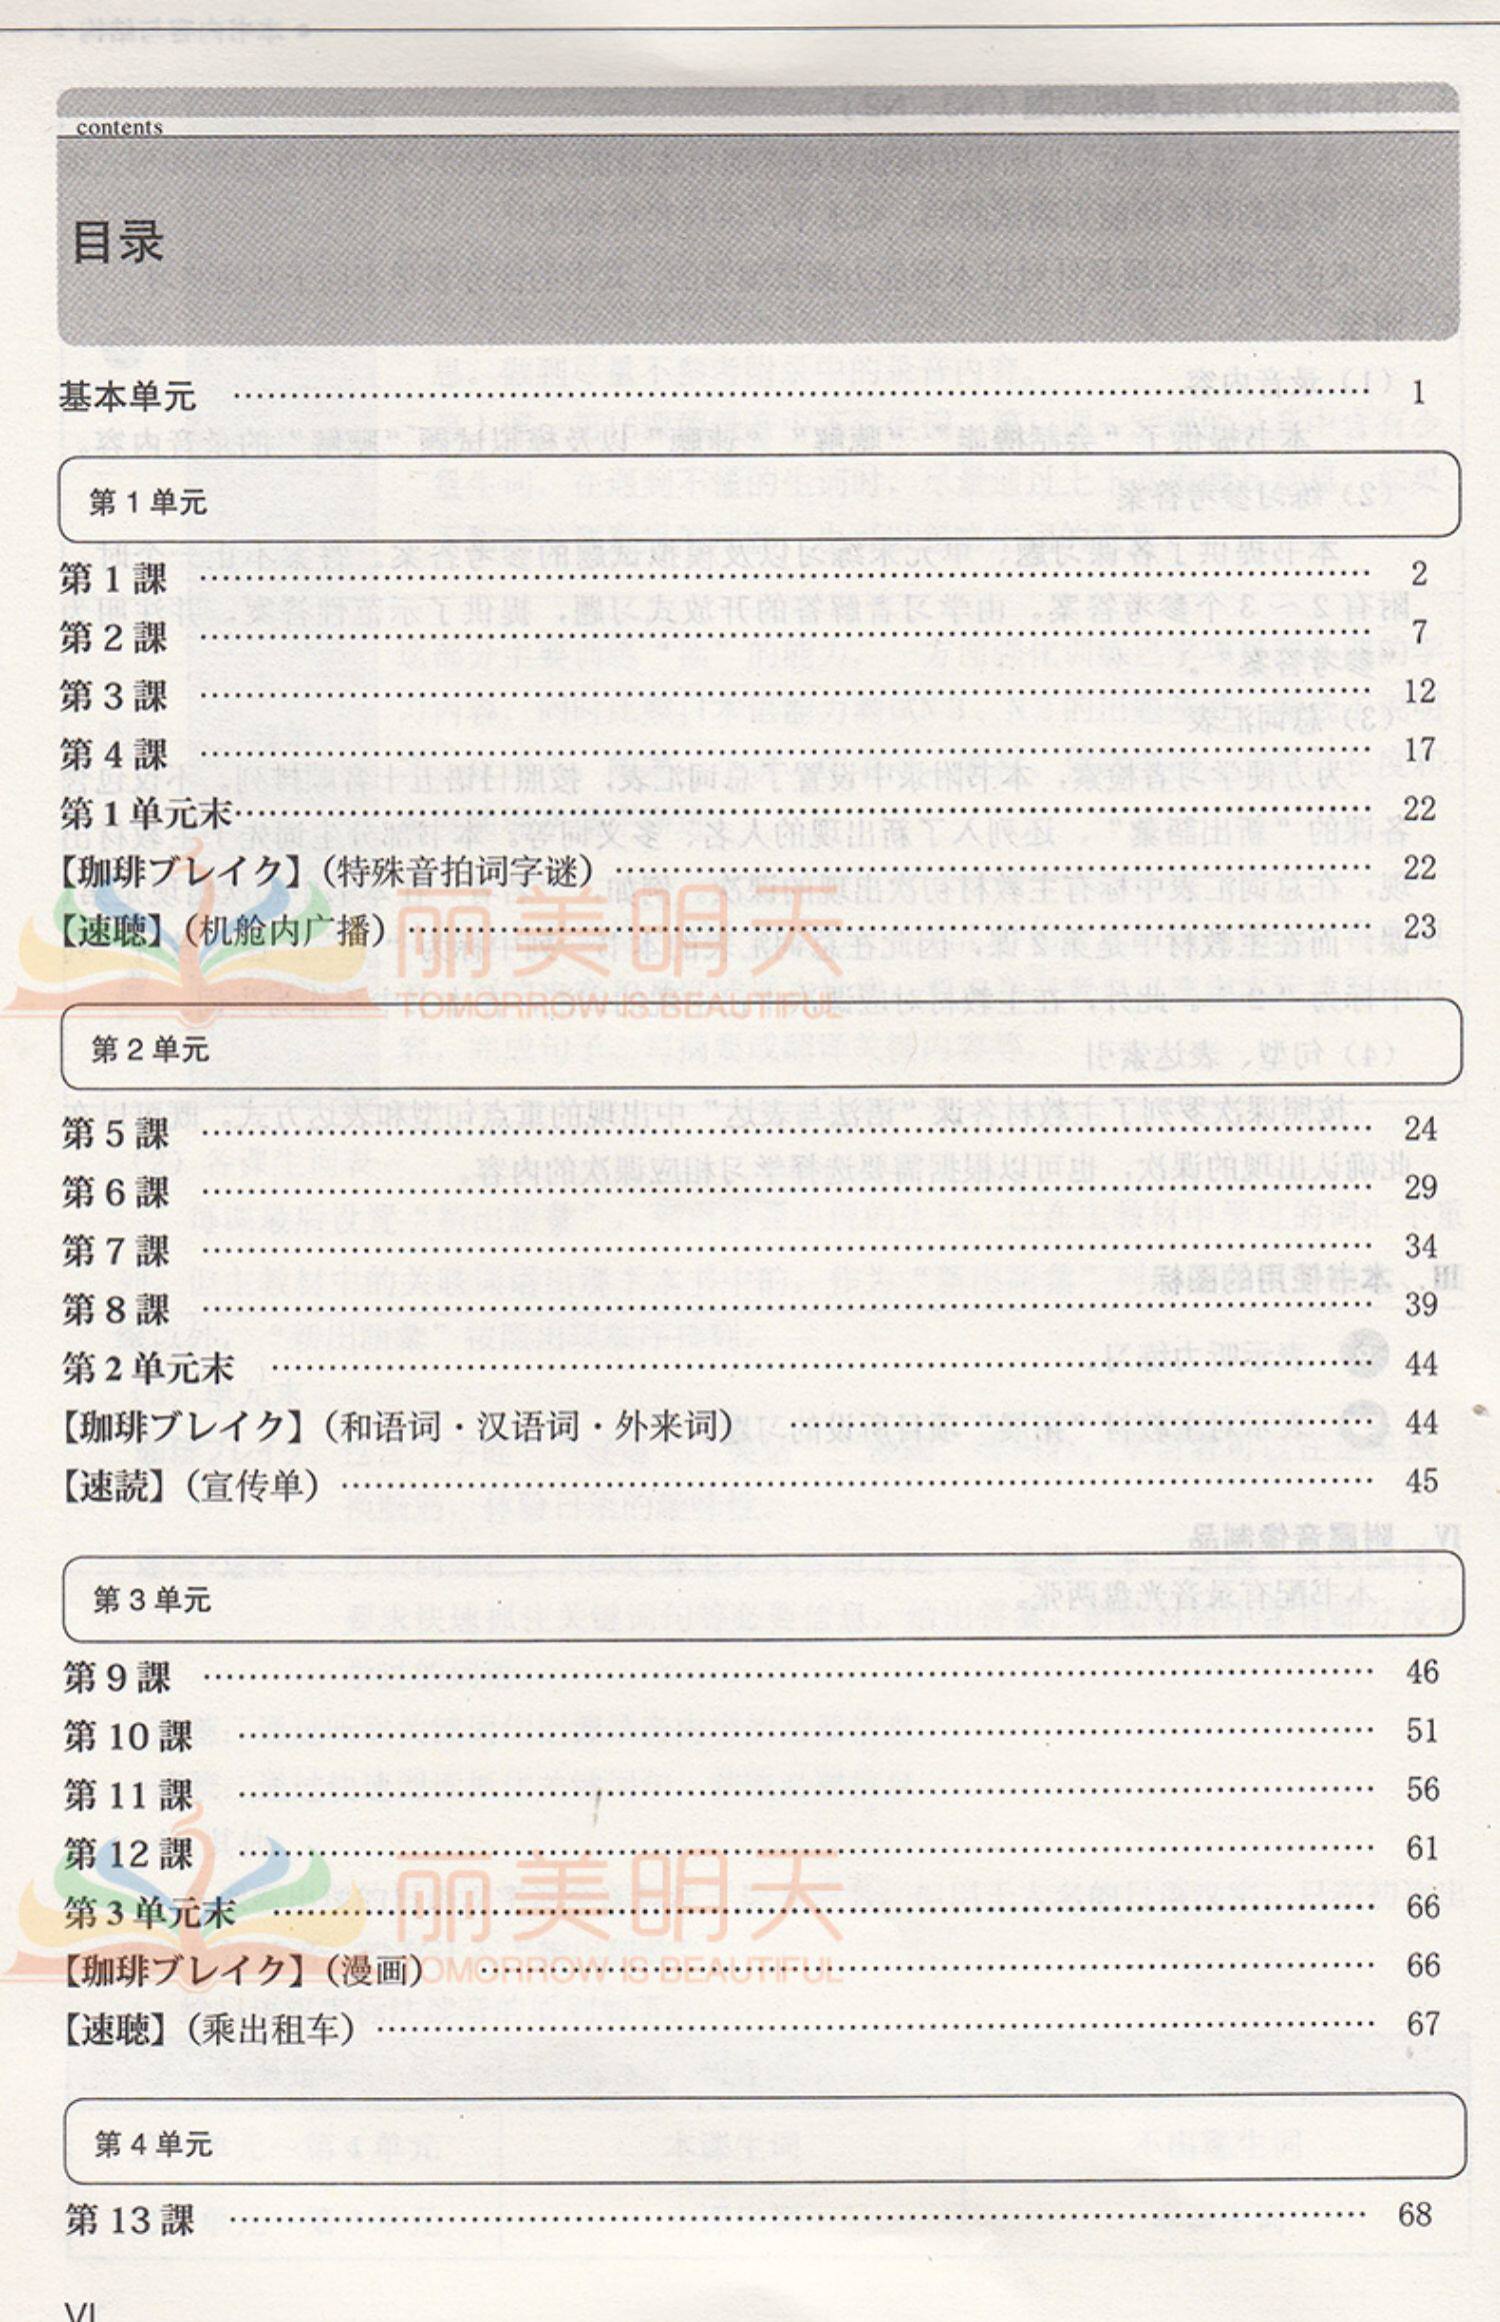 contents
目录
基本单元 …… 1
第 1 单元
第 1 課 …… 2
第 2 課 …… 7
第 3 課 …… 12
第 4 課 …… 17
第 1 单元末 …… 22
【珈琲ブレイク】（特殊音拍词字谜） …… 22
【速聴】（机舱内广播） …… 23
丽美明天
TOMORROW IS BEAUTIFUL
第 2 单元
第 5 課 …… 24
第 6 課 …… 29
第 7 課 …… 34
第 8 課 …… 39
第 2 单元末 …… 44
【珈琲ブレイク】（和语词・汉语词・外来词） …… 44
【速読】（宣传单） …… 45
第 3 单元
第 9 課 …… 46
第 10 課 …… 51
第 11 課 …… 56
第 12 課 …… 61
第 3 单元末 …… 66
丽美明天
【珈琲ブレイク】（漫画） …… 66
TOMORROW IS BEAUTIFUL
【速聴】（乘出租车） …… 67
第 4 单元
第 13 課 …… 68
VI